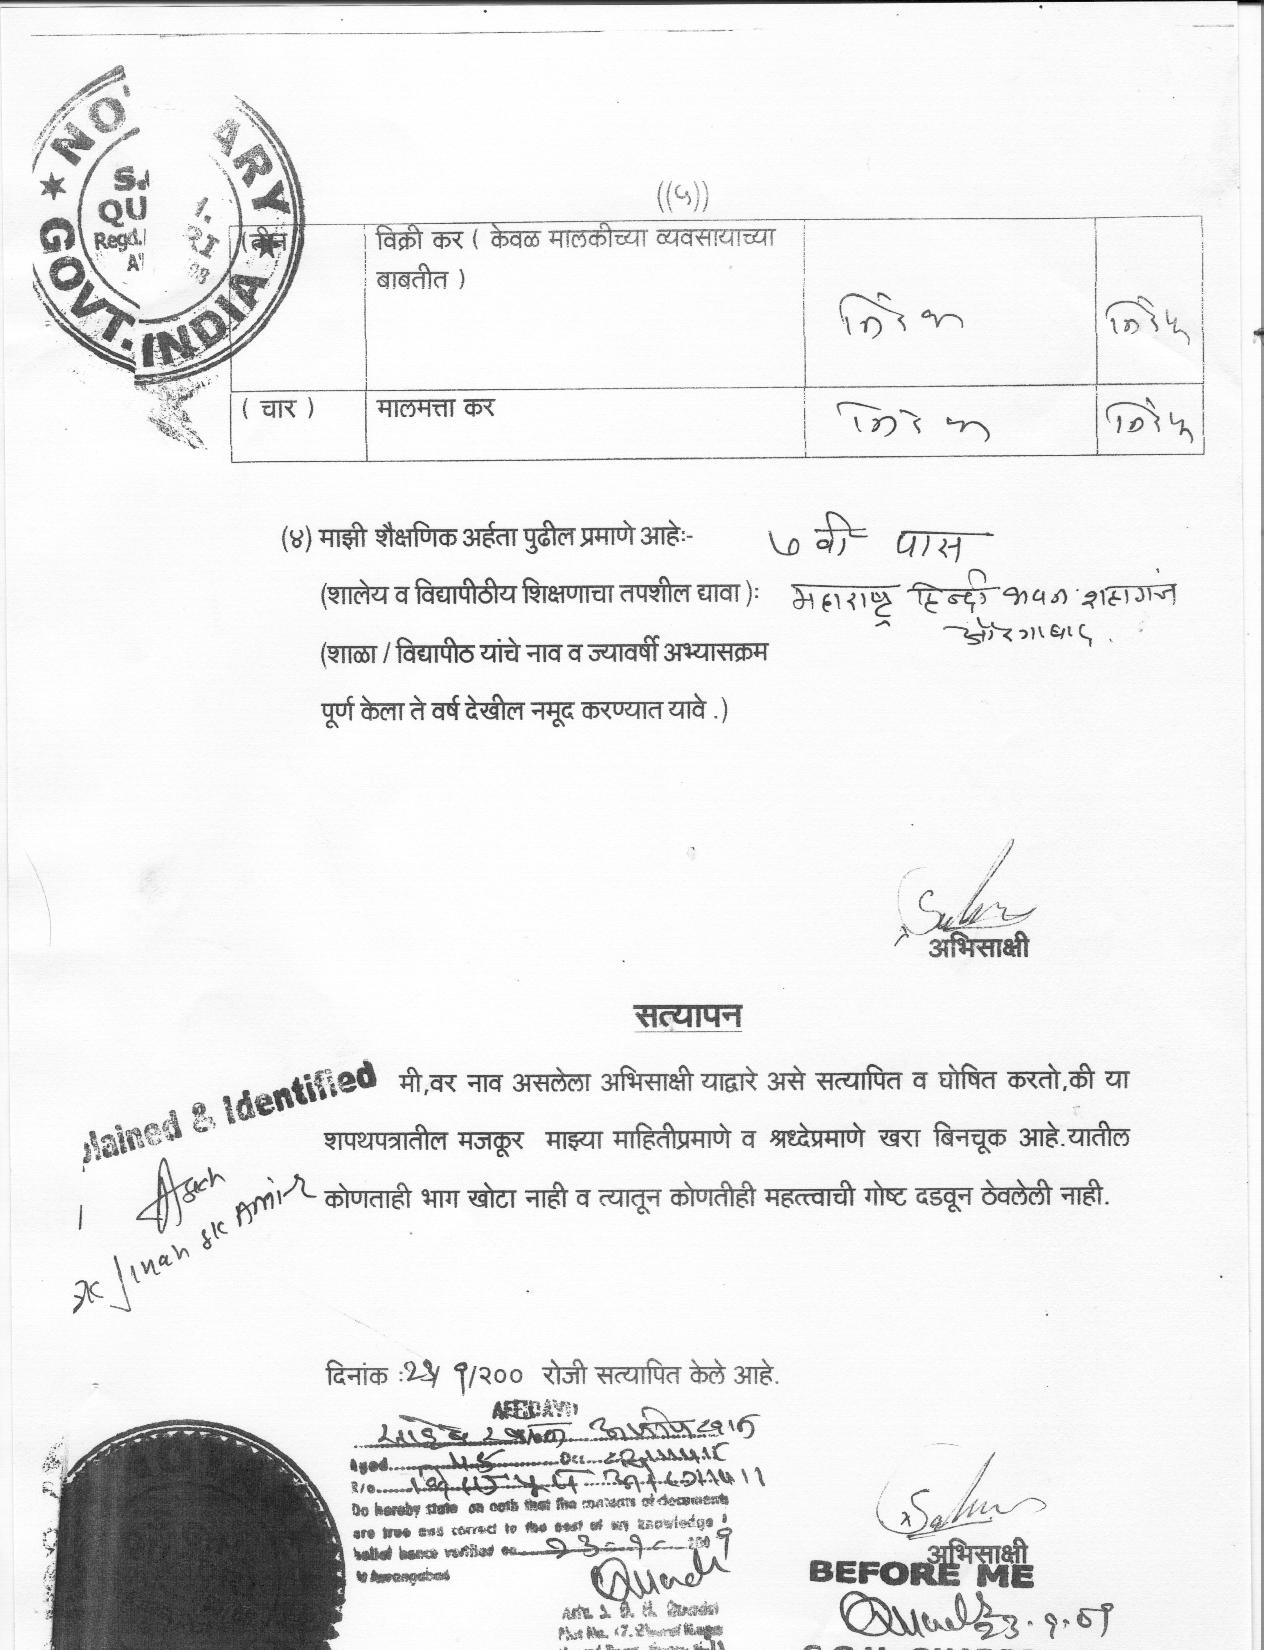 NOTARY
GOVT. INDIA
((५))
(तीन
विक्री कर ( केवळ मालकीच्या व्यवसायाच्या
बाबतीत )
निरंक
निरंक
( चार )
मालमत्ता कर
निरंक
निरंक
(४) माझी शैक्षणिक अर्हता पुढील प्रमाणे आहेः- ७ वी पास
(शालेय व विद्यापीठीय शिक्षणाचा तपशील द्यावा )ः महाराष्ट्र हिन्दी भवन शहागंज
औरंगाबाद.
(शाळा / विद्यापीठ यांचे नाव व ज्यावर्षी अभ्यासक्रम
पूर्ण केला ते वर्ष देखील नमूद करण्यात यावे .)
अभिसाक्षी
सत्यापन
plained & Identified
मी,वर नाव असलेला अभिसाक्षी याद्वारे असे सत्यापित व घोषित करतो,की या
शपथपत्रातील मजकूर माझ्या माहितीप्रमाणे व श्रध्देप्रमाणे खरा बिनचूक आहे.यातील
कोणताही भाग खोटा नाही व त्यातून कोणतीही महत्त्वाची गोष्ट दडवून ठेवलेली नाही.
दिनांक :२३/ ९/२०० रोजी सत्यापित केले आहे.
AFFIDAVIT
Aged Occ
R/o
Do hereby state on oath that the contents of documents
are true and correct to the best of my knowledge &
belief hence verified on 23-9-2009
at Aurangabad
अभिसाक्षी
BEFORE ME
23.9.09